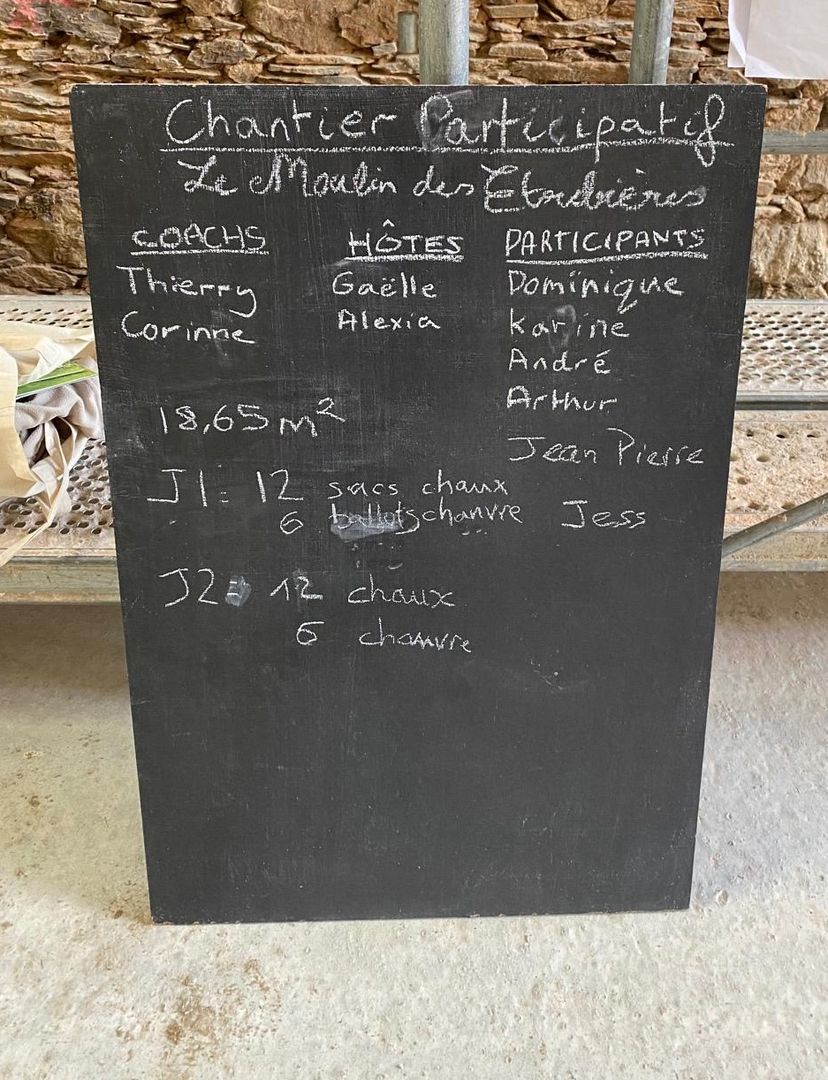 Chantier Participatif
Le Moulin des
COACHS HÔTES PARTICIPANTS
Thierry Gaëlle Dominique
Corinne Alexia Karine
André
Arthur
18,65 m²
Jean Pierre
J1: 12 sacs chaux
6 ballots chanvre Jess
J2: 12 chaux
6 chanvre